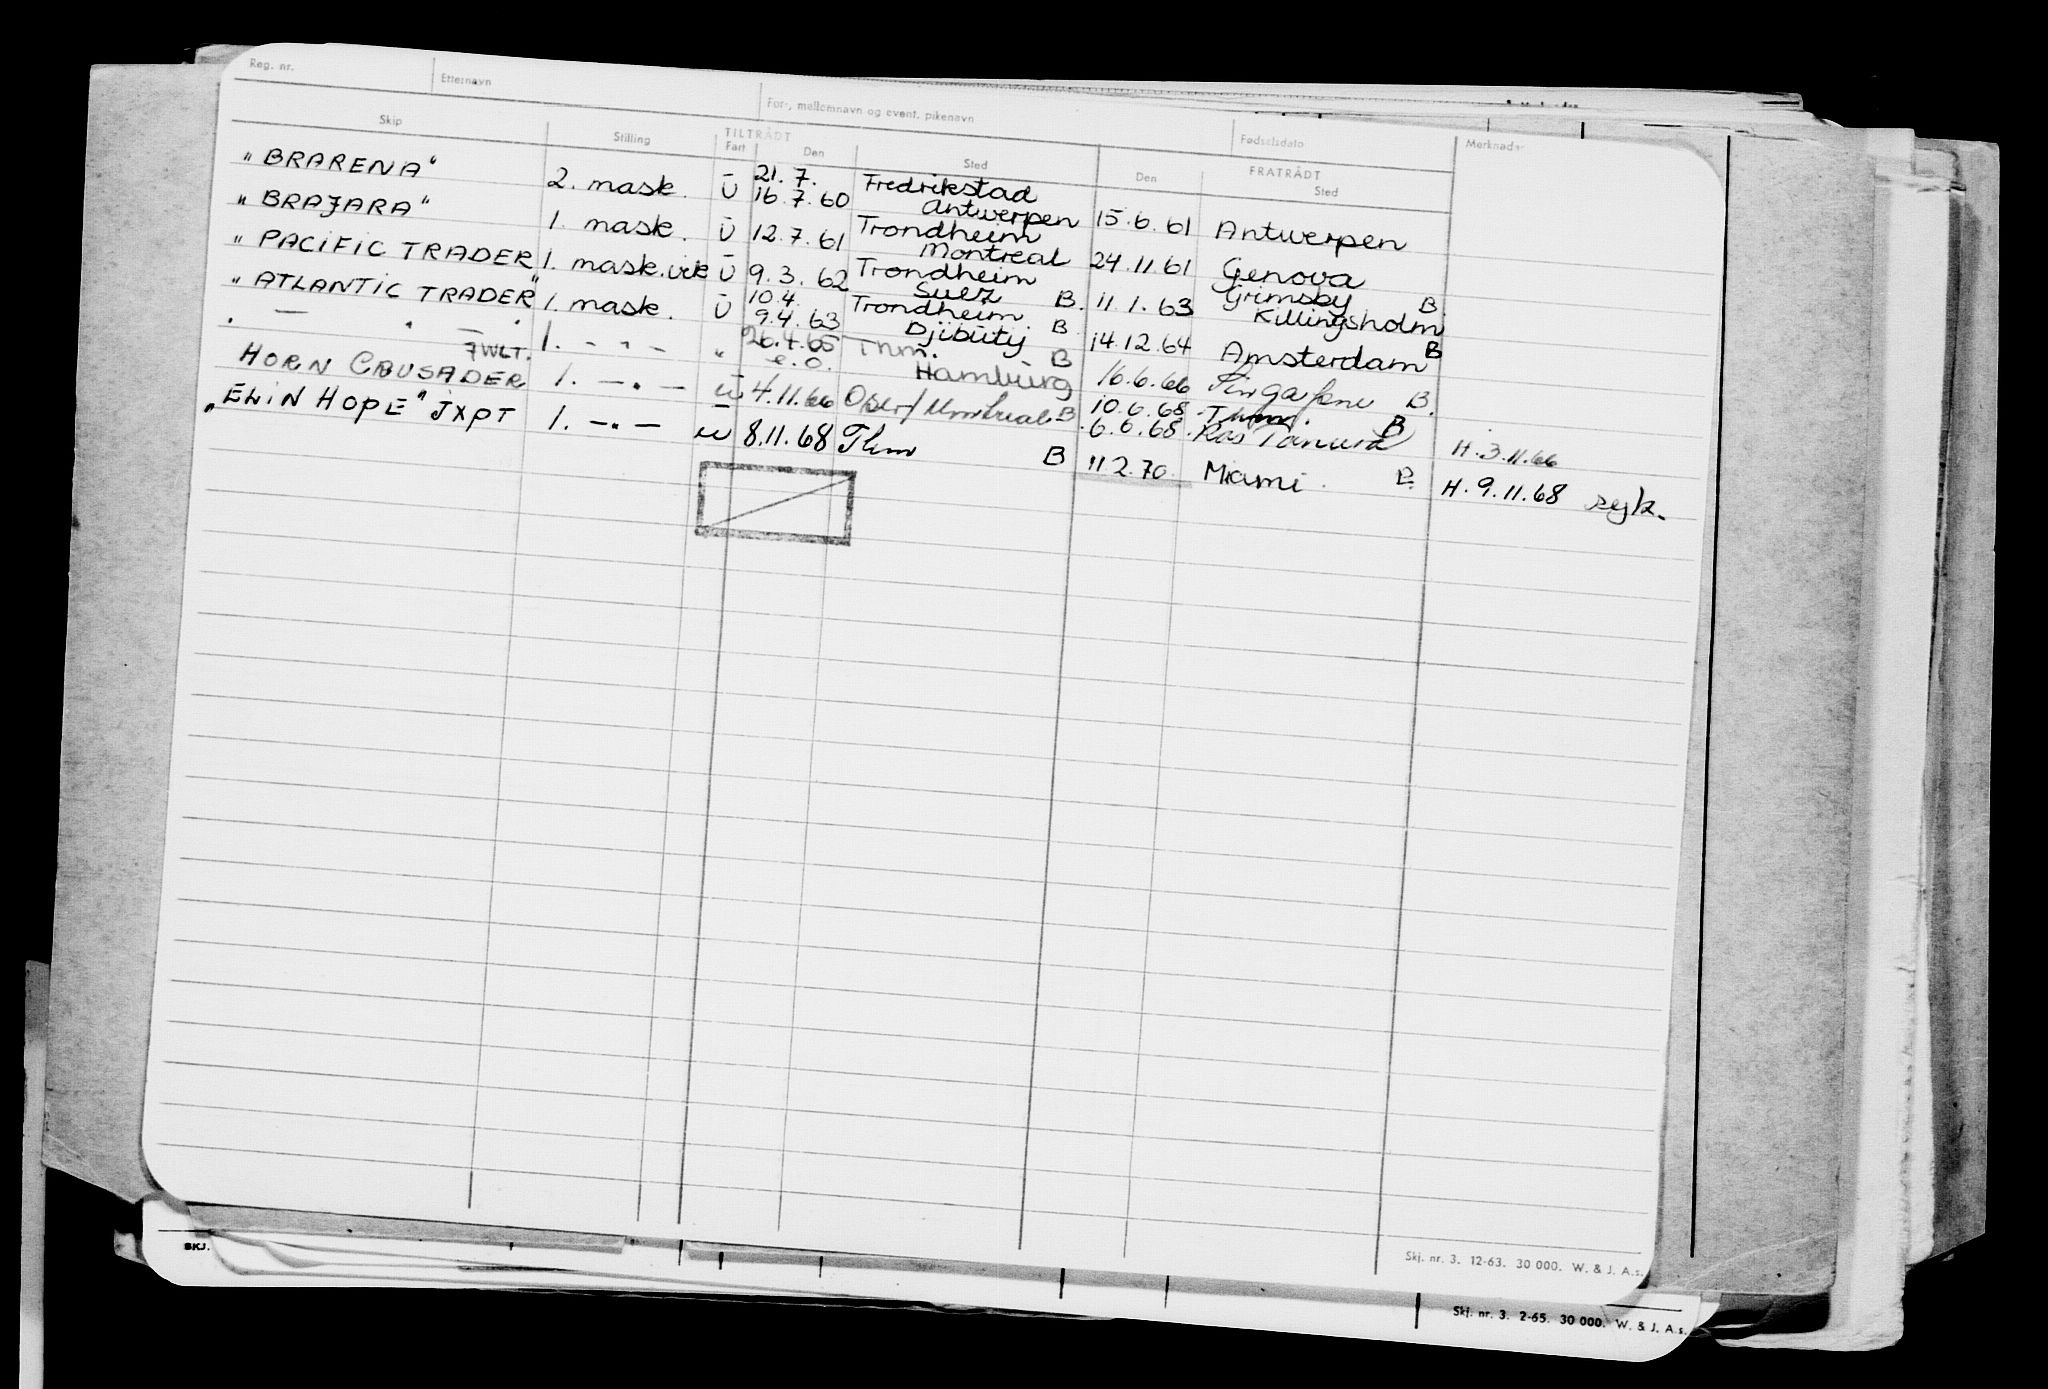 Reg. nr. Etternavn For-, mellemnavn og event. pikenavn Fødselsdato Merknader
Skip Stilling TILTRÅDT FRATRÅDT
Fart Den Sted Den Sted
"BRARENA" 2. mask. Ū 21.7. 16.7.60 Fredrikstad Antwerpen 15.6.61 Antwerpen
"BRAJARA" 1. mask. Ū 12.7.61 Trondheim Montreal 24.11.61 Genova
"PACIFIC TRADER" 1. mask.vik Ū 9.3.62 Trondheim Suez B. 11.1.63 Grimsby Killingsholm B.
"ATLANTIC TRADER" 1. mask. Ū 10.4. 9.4.63 Trondheim Djibutij B 14.12.64 Amsterdam B
" — " — " 1. - " - " 26.4.65 e.o. Thm. Hamburg B 16.6.66 B.
HORN CRUSADER JWLT. 1. —"— u 4.11.66 B. 10.6.68 6.6.68 Thm. Ras Tanura B H. 3.11.66
"ELIN HOPE" JXPT 1. —"— u 8.11.68 Thm B 11.2.70 Miami B. H. 9.11.68 syk.
Skj. nr. 3. 12-63. 30 000. W. & J. A.s.
SKJ.
Skj. nr. 3. 2-65. 30 000. W. & J. A.s.